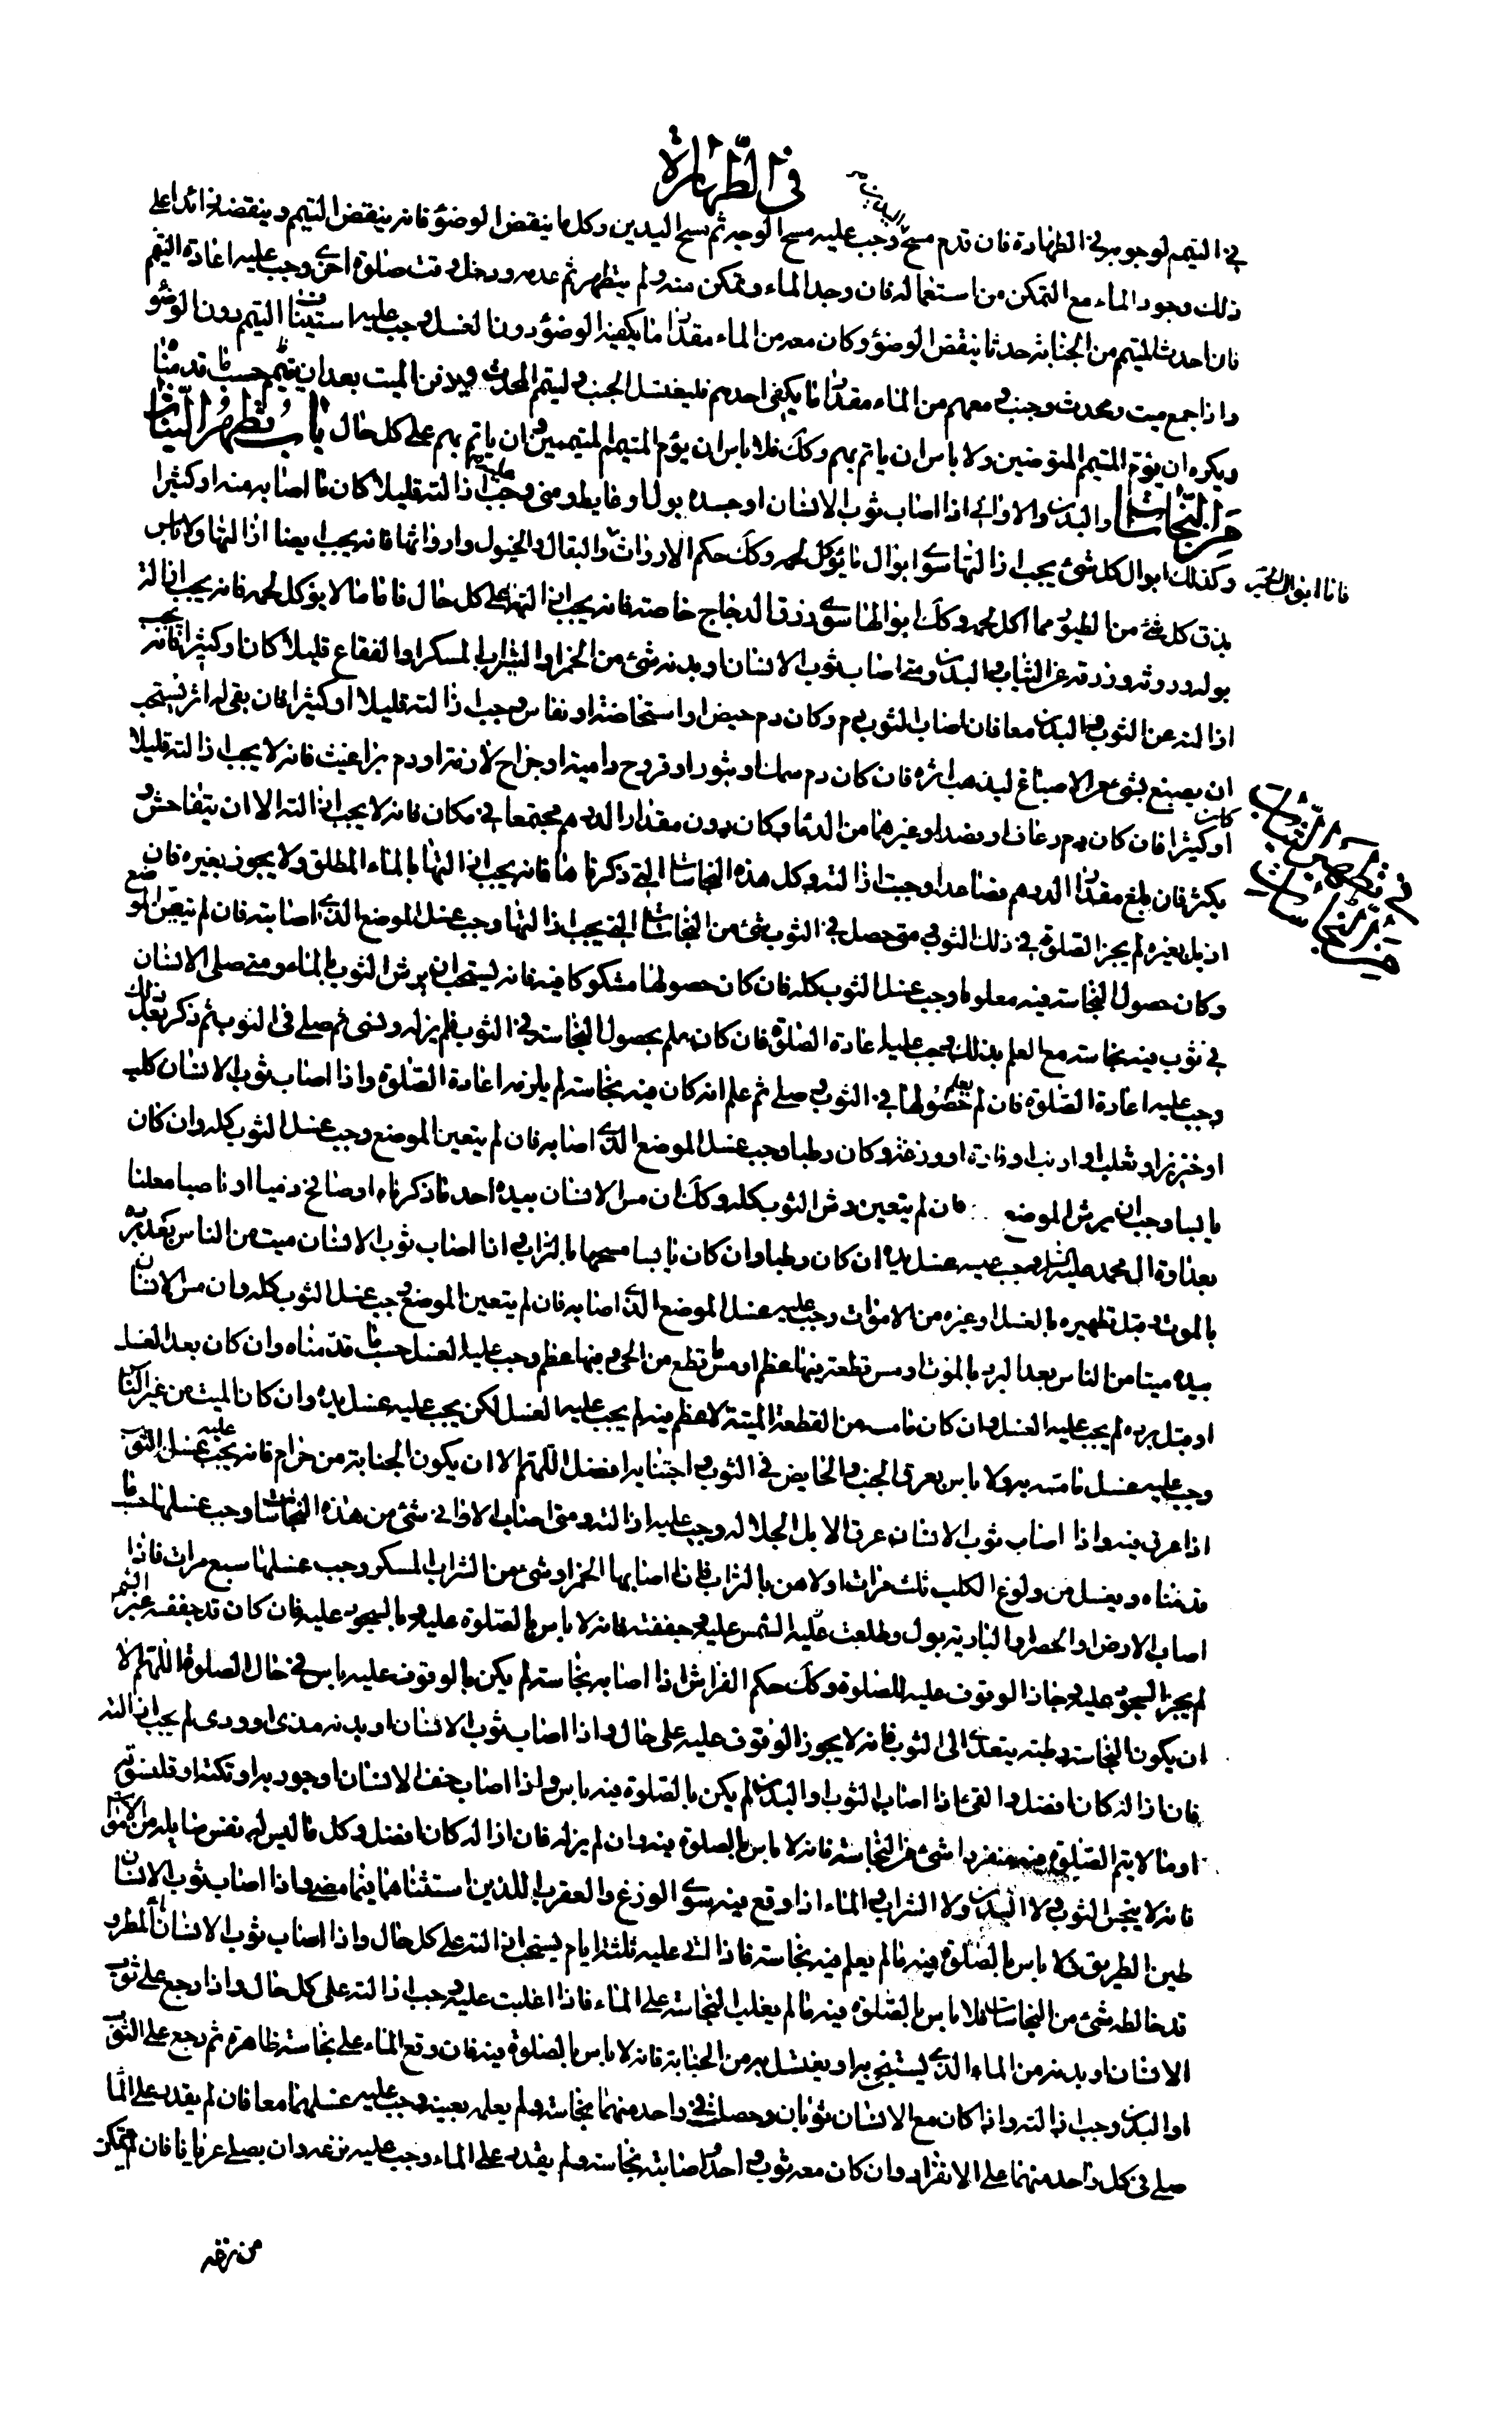 في الطهارة
في التيمم لوجوبه في الطهارة فان قدم مسح اليدين وجب عليه مسح الوجه ثم مسح اليدين وكل ما ينقض الوضوء فانه ينقض التيمم وينقضه زائدا على
ذلك وجود الماء مع التمكن من استعماله فان وجد الماء وتمكن منه ولم يتطهر ثم عدمه ودخل وقت صلوة اخرى وجب عليه اعادة التيمم
فان احدث المتيمم من الجنابة حدثا ينقض الوضوء وكان معه من الماء مقدار ما يكفيه الوضوء دون الغسل وجب عليه استيناف التيمم دون الوضوء
واذا جمع ميت ومحدث وجنب ومعهم من الماء مقدار ما يكفى احدهم فليغتسل الجنب وليتيمم المحدث ويدفن الميت بعد ان ييمم حسب ما قدمناه
ويكره ان يؤم المتيمم المتوضين ولا باس ان ياتم بهم وكك فلا باس ان يؤم المتيمم المتيممين وان ياتم بهم على كل حال باب تطهير الثياب
من النجاسات والبدن والاواني اذا اصاب ثوب الانسان او جسده بول او غايط او منى وجب عليه ازالته قليلا كان ما اصابه منه او كثيرا
وكذلك ابوال كل شئ يجب ازالتها سوى ابوال ما يؤكل لحمه وكك حكم الارواث والبغال والخيول وارواثها فانه يجب ايضا ازالتها ولا باس
بذرق كل شئ من الطيور مما اكل لحمه وكك ابوالها سوى ذرق الدجاج خاصة فانه يجب ازالتها على كل حال فاما ما لا يؤكل لحمه فانه يجب ازالة
بوله وروثه وذرقه عن الثياب والبدن ومتى اصاب ثوب الانسان او بدنه شئ من الخمر او الشراب المسكر او الفقاع قليلا كان او كثيرا فانه يجب
ازالته عن الثوب والبدن معا فان اصاب الثوب دم وكان دم حيض او استحاضة او نفاس وجب ازالته قليلا او كثيرا فان بقى له اثر يستحب
ان يصبغ بشئ من الاصباغ ليذهب اثره فان كان دم سمك او بثور او قروح دامية او جراح لازمة او دم براغيث فانه لا يجب ازالته قليلا
كان او كثيرا فان كان دم رعاف او فصد او غيرهما من الدماء وكان دون مقدار الدرهم مجتمعا في مكان فانه لا يجب ازالته الا ان يتفاحش و
يكثر فان بلغ مقدار الدرهم فصاعدا وجبت ازالته وكل هذه النجاسات التي ذكرناها فانه يجب ازالتها بالماء المطلق ولا يجوز بغيره فان
ازيل بغيره لم يجز الصلوة في ذلك الثوب ومتى حصل في الثوب شئ من النجاسات التي يجب ازالتها وجب غسل الموضع الذي اصابته فان لم يتعين الموضع
وكان حصول النجاسة فيه معلوما وجب غسل الثوب كله فان كان حصولها مشكوكا فيه فانه يستحب ان يرش الثوب بالماء ومتى صلى الانسان
في ثوب فيه نجاسة مع العلم بذلك وجب عليه اعادة الصلوة فان كان علم بحصول النجاسة في الثوب فلم يزله ونسى ثم صلى في الثوب ثم ذكر بعد ذلك
وجب عليه اعادة الصلوة فان لم يعلم حصولها في الثوب وصلى ثم علم انه كان فيه نجاسة لم يلزمه اعادة الصلوة واذا اصاب ثوب الانسان كلب
او خنزير او ثعلب او ارنب او فارة او وزغة وكان رطبا وجب غسل الموضع الذي اصابه فان لم يتعين الموضع وجب غسل الثوب كله وان كان
يابسا وجب ان يرش الموضع فان لم يتعين رش الثوب كله وكك ان مس الانسان بيده احد ما ذكرناه او صافح ذميا او ناصبا معلنا
بعداوة ال محمد عليه السلام وجب عليه غسل يده ان كان رطبا وان كان يابسا مسحها بالتراب واذا اصاب ثوب الانسان ميت من الناس بعد برده
بالموت وقبل تطهيره بالغسل او غيره من الاموات وجب عليه غسل الموضع الذي اصابه فان لم يتعين الموضع وجب غسل الثوب كله وان مس الانسان
بيده ميتا من الناس بعد البرد بالموت او مس قطعة فيها عظم او مس ما قطع من الحي وفيها عظم وجب عليه الغسل حسب ما قدمناه وان كان بعد الغسل
او قبل برده لم يجب عليه الغسل وان كان ما مسه من القطعة الميتة لا عظم فيه لم يجب عليه الغسل لكن يجب عليه غسل يده وان كان الميت من غير الناس
وجب عليه غسل ما مسه به ولا باس بعرق الجنب والحايض في الثوب واجتنابه افضل اللهم الا ان يكون الجنابة من حرام فانه يجب عليه غسل الثوب
اذا عرق فيه واذا اصاب ثوب الانسان عرق الابل الجلالة وجب عليه ازالته ومتى اصاب الاواني شئ من هذه النجاسات وجب غسلها حسب ما
قدمناه ويغسل من ولوغ الكلب ثلث مرات اولاهن بالتراب فاذا اصابها الخمر او شئ من الشراب المسكر وجب غسلها سبع مرات فاذا
اصاب الارض او الحصر او البارية بول وطلعت عليه الشمس وجففته فانه لا باس بالصلوة عليه والسجود عليه فان كان قد جففه غير الشمس
لم يجز السجود عليه وجاز الوقوف عليه للصلوة وكك حكم الفراش اذا اصابه نجاسة لم يكن بالوقوف عليه باس في حال الصلوة اللهم الا
ان يكون النجاسة رطبة يتعدى الى الثوب فانه لا يجوز الوقوف عليه على حال واذا اصاب ثوب الانسان او بدنه مذى او ودى لم يجب ازالته
فان ازاله كان افضل والقئ اذا اصاب الثوب او البدن لم يكن بالصلوة فيه باس واذا اصاب خف الانسان او جوربه او تكته او قلنسوته
او ما لا يتم الصلوة فيه منفردا شئ من النجاسة فانه لا باس بالصلوة فيه وان لم يزله فان ازاله كان افضل وكل ما ليس له نفس سايلة من الاموات
فانه لا ينجس الثوب ولا البدن ولا الشراب والماء اذا وقع فيه سوى الوزغ والعقرب اللذين استثناهما فيما مضى واذا اصاب ثوب الانسان
طين الطريق فلا باس بالصلوة فيه ما لم يعلم فيه نجاسة فاذا اتى عليه ثلثة ايام يستحب ازالته على كل حال واذا اصاب ثوب الانسان ماء المطر و
قد خالطه شئ من النجاسات فلا باس بالصلوة فيه ما لم يغلب النجاسة على الماء فاذا غلبت عليه وجب ازالته على كل حال واذا رجع على ثوب
الانسان او بدنه من الماء الذي يستنجي به او يغتسل به من الجنابة فانه لا باس بالصلوة فيه فان وقع الماء على نجاسة ظاهرة ثم رجع على الثوب
او البدن وجب ازالته واذا كان مع الانسان ثوبان وحصلت في واحد منهما نجاسة ولم يعلمه بعينه وجب عليه غسلهما معا فان لم يقدر على الماء
صلى في كل واحد منهما على الانفراد وان كان معه ثوب واحد واصابته نجاسة ولم يقدر على الماء وجب عليه نزعه وان يصلي عريانا فان لم يتمكن
من نزعه
فاما ابوال الحمير
في تطهير الثياب
من النجاسات